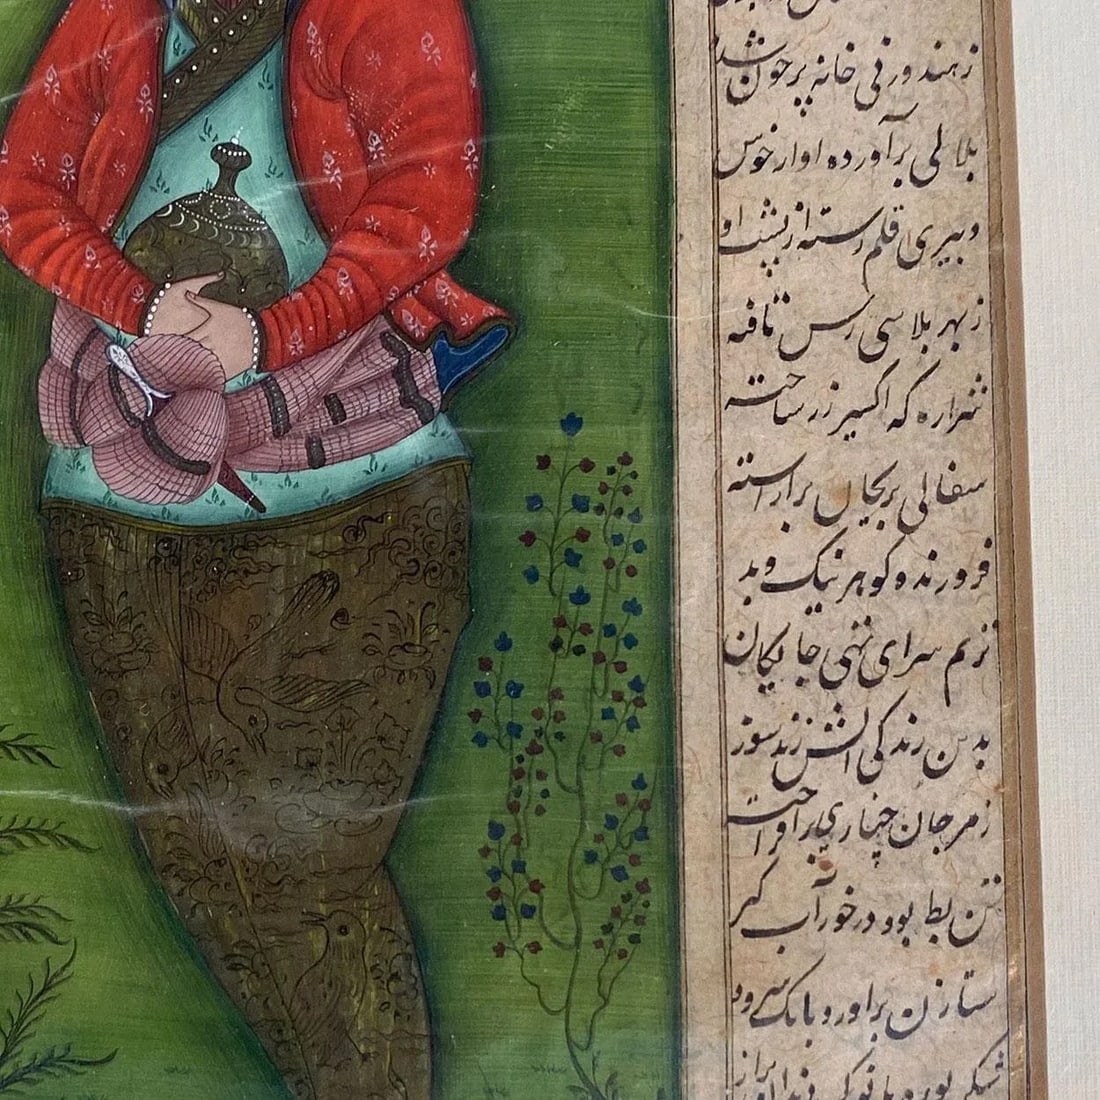 ز هندو زنی خانه پر خون شده
بلالی برآورده آواز خوش
دبیری قلم رسته از پشت او
ز بهر بلاسی رسن تافته
شراره که اکسیر زر ساخته
سفالی بریحان براراسته
فروزنده گوهر نیک و بد
ترنم سرای تهی جایگان
بدین زندگی آتش زند سوز
ز مرجان چناری برافراخته
تن بط بود در خور آب گیر
ستا زن براورد بانک سرود